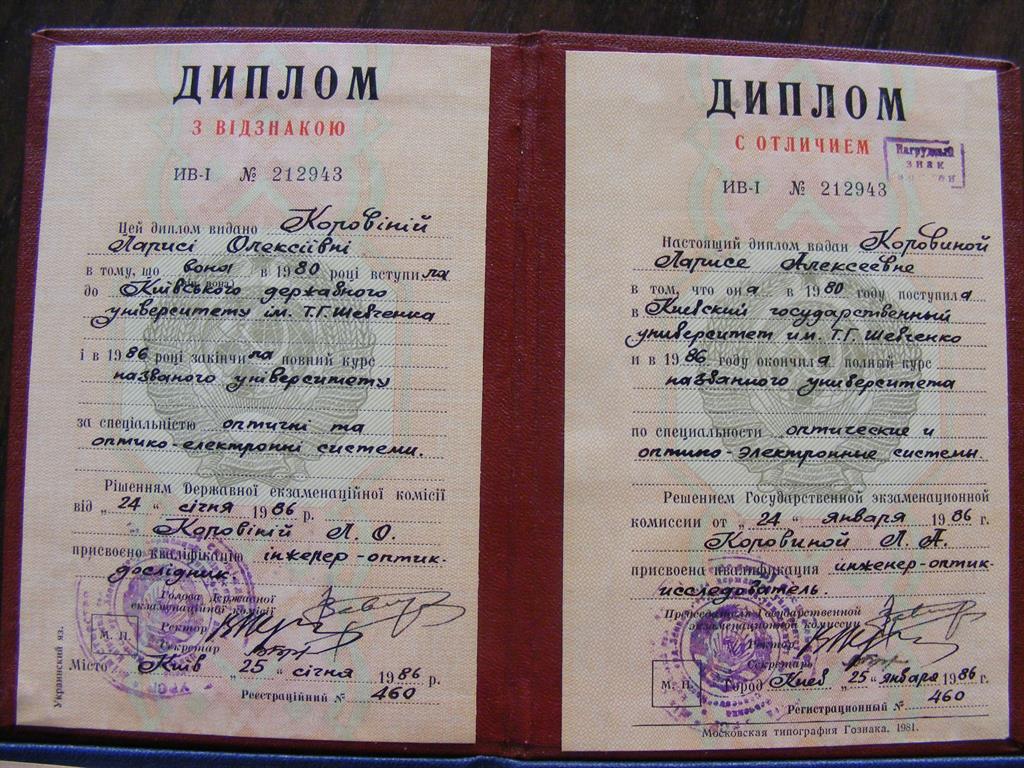 ДИПЛОМ
З ВІДЗНАКОЮ
ИВ-I № 212943
Цей диплом видано Коровіній
Ларисі Олексіївні
в тому, що вона в 1980 році вступила
до Київського державного
університету ім. Т.Г. Шевченка
і в 1986 році закінчила повний курс
названого університету
за спеціальністю оптичні та
оптико-електронні системи.
Рішенням Державної екзаменаційної комісії
від „24“ січня 1986 р.
Коровіній Л. О.
присвоєно кваліфікацію інженер-оптик-
дослідник.
Голова Державної
екзаменаційної комісії
Ректор
Секретар
М. П.
Місто Київ „25“ січня 1986 р.
Реєстраційний № 460
Украинский яз.
ДИПЛОМ
С ОТЛИЧИЕМ
Нагрудный
знак
ИВ-I № 212943
Настоящий диплом выдан Коровиной
Ларисе Алексеевне
в том, что она в 1980 году поступила
в Киевский государственный
университет им. Т.Г. Шевченко
и в 1986 году окончила полный курс
названного университета
по специальности оптические и
оптико-электронные системы.
Решением Государственной экзаменационной
комиссии от „24“ января 1986 г.
Коровиной Л. А.
присвоена квалификация инженер-оптик-
исследователь.
Председатель Государственной
экзаменационной комиссии
Ректор
Секретарь
М. П.
Город Киев „25“ января 1986 г.
Регистрационный № 460
Московская типография Гознака. 1981.